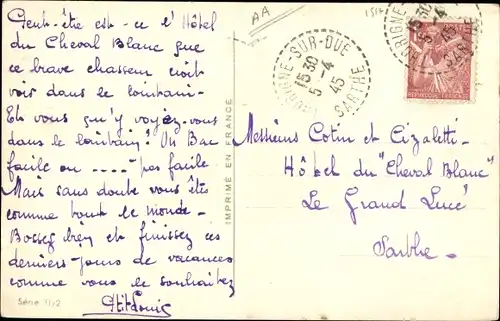 Peut-être est-ce l'Hôtel
du Cheval Blanc que
ce brave chasseur croit
voir dans le lointain-
Et vous qu'y voyez-vous
dans le lointain? Un Bac
facile ou ---- pas facile
Mais sans doute vous êtes
comme tout le monde-
Bossez bien et finissez ces
derniers jours de vacances
comme vous le souhaitez
Ptit Louis
Série 11/2
IMPRIMÉ EN FRANCE
AA
-SUR-DUE
15 30
5-4
45
SARTHE
15 30
5-4
45
SARTHE
Messieurs Cotin et Cizaletti-
Hôtel du "Cheval Blanc"
Le Grand Lucé
Sarthe-